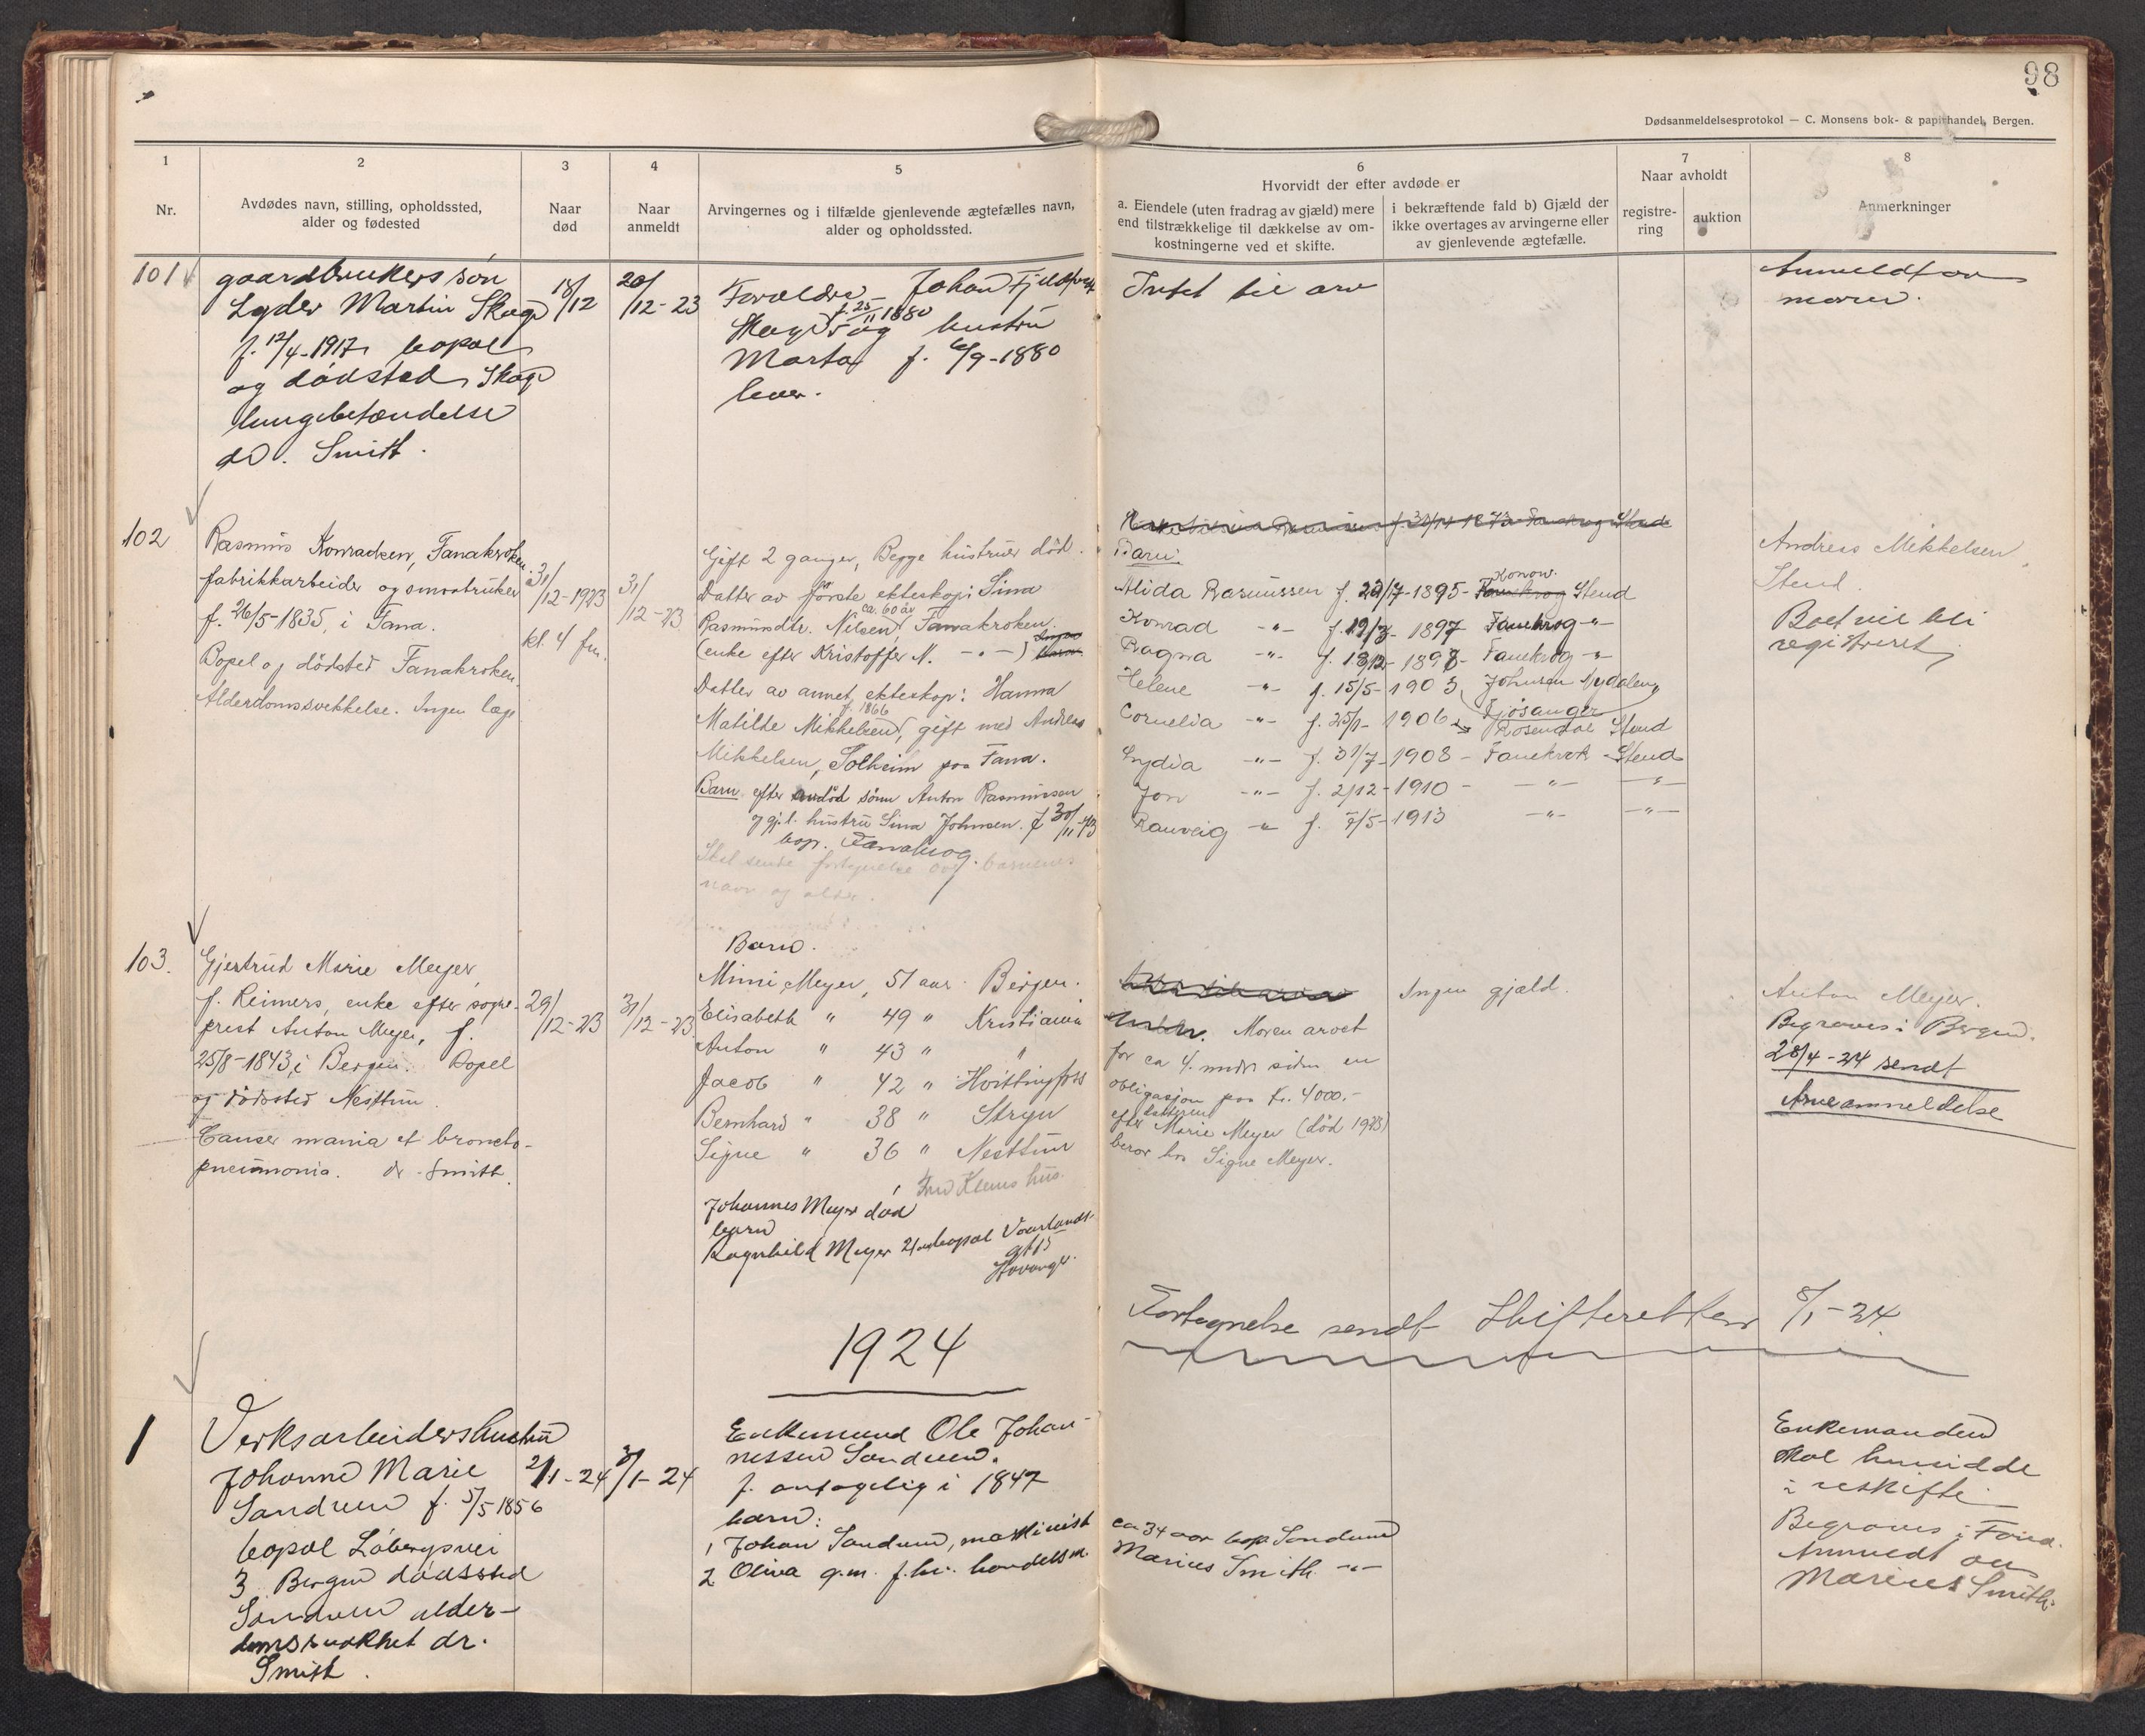 98
Dødsanmeldelsesprotokol — C. Monsens bok- & papirhandel, Bergen.
1
Nr.
2
Avdødes navn, stilling, opholdssted,
alder og fødested
3
Naar
død
4
Naar
anmeldt
5
Arvingernes og i tilfælde gjenlevende ægtefælles navn,
alder og opholdssted.
6
Hvorvidt der efter avdøde er
a. Eiendele (uten fradrag av gjæld) mere
end tilstrækkelige til dækkelse av om-
kostningerne ved et skifte.
i bekræftende fald b) Gjæld der
ikke overtages av arvingerne eller
av gjenlevende ægtefælle.
7
Naar avholdt
registre-
ring
auktion
8
Anmerkninger
101
gaardbrukers søn
Lyder Martin Skage
f. 12/4-1917 bopæl
og dødsted Skage
lungebetændelse
dr. Smith.
18/12
20/12-23
Forældre Johan
f. 25/11 1880
Skage og hustru
Marta f. 6/9-1880
lever.
Intet til arv
Anmeldt av
moren.
102
Rasmus Konradsen, Fanakroken.
fabrikkarbeider og smaabruker
f. 26/5-1835, i Fana.
Bopel og dödsted Fanakroken.
Alderdomssvekkelse. Ingen læge
31/12-1923
kl. 4 fm.
31/12-23
Gift 2 ganger, Begge hustruer död.
Datter av förste ekteskap: Sina
ca. 60 år
Rasmusdtr. Nilsen, Fanakroken.
(enke efter Kristoffer N. -"-)
Datter av annet ekteskap: Hanna
f. 1866
Matilde Mikkelsen, gift med Andreas
Mikkelsen, Solheim paa Fana.
Barn efter avdöd sönn Anton Rasmussen
og gj.l. hustru Sina Johnsen. f 30/11-73
bop. Fanakrog.
Skal sende fortegnelse over barnenes
navn og alder.
Barn:
Konow.
Alida Rasmussen f. 29/7-1895- Fanekrog Stend
Konrad -"- f. 19/3-1897 Fanekrog -"-
Ragna -"- f. 18/12-1898- Fanekrog -"-
Helene -"- f. 15/5-1903, Johnsen Nydalen,
Fjösanger
Cornelia -"- f. 25/1-1906 Rosendal Stend
Lydia -"- f. 31/7-1908 - Fanekrok Stend
Jon -"- f. 2/12-1910 - -"- -"-
Rauveig -"- f. 7/5-1913 -"- -"-
Andreas Mikkelsen,
Stend.
Boet vil bli
registreret
103.
Gjertrud Marie Meyer,
f. Reimers, enke efter sogne-
prest Anton Meyer, f.
25/8-1843, i Bergen. Bopel
og dödssted Nesttun.
Causer mania et broncho-
pneumonia. dr. Smith.
29/12-23
31/12-23
Barn.
Mimi Meyer, 51 aar Bergen.
Elisabeth " 49 " Kristiania
Anton " 43 " "
Jacob " 42 " Hvittingfoss
Bernhard " 38 " Stryn
Signe " 36 " Nesttun
Fru Klems hus.
Johannes Meyer död
barn
Ragnhild Meyer 21 aar bopæl
Moren arvet
for ca 4. mndr siden en
obligasjon paa kr. 4000.-
datteren
efter Marie Meyer (död 1923)
beror hos Signe Meyer.
Ingen gjæld.
Anton Meyer.
Begraves i Bergen.
28/4-24 sendt
Arveanmeldelse
Fortegnelse sendt Skifteretten 8/1-24
1924
1
Verksarbeidershustru
Johanne Marie
Sandven f. 5/5 1856
bopæl Löbergsvei
3 Bergen dödssted
Sandven alder-
domssvakhet dr.
Smith.
2/1-24
3/1-24
Enkemand Ole Johan-
nessen Sandven.
f. antagelig i 1847
barn:
1 Johan Sandven, maskinist
ca 34 aar bop. Sandven
2 Oliva g.m. f.hv. handelsm.
Marius Smith -"-
Enkemanden
skal hensidde
i uskifte
Begraves i Fana.
Anmeldt av
Marius Smith.